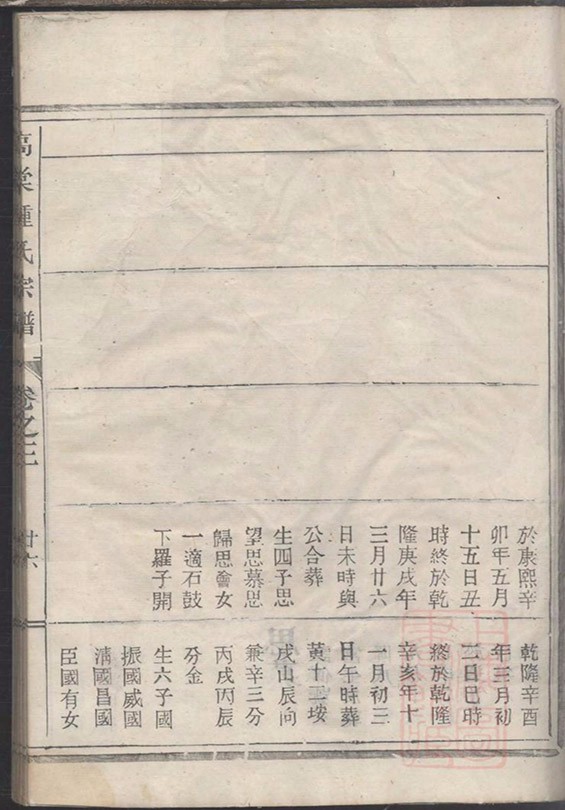 於康熙辛
卯年五月
十五日丑
時終於乾
隆庚戌年
三月廿六
日未時與
公合葬
生四子思
望思慕思
歸思會女
一適石鼓
下羅子開
乾隆辛酉
年三月初
三日巳時
終於乾隆
辛亥年十
一月初三
日午時葬
黄十玉垵
戌山辰向
兼辛三分
丙戌丙辰
分金
生六子國
振國威國
清國昌國
臣國有女
高棠鍾氏宗譜
卷之三
廿六